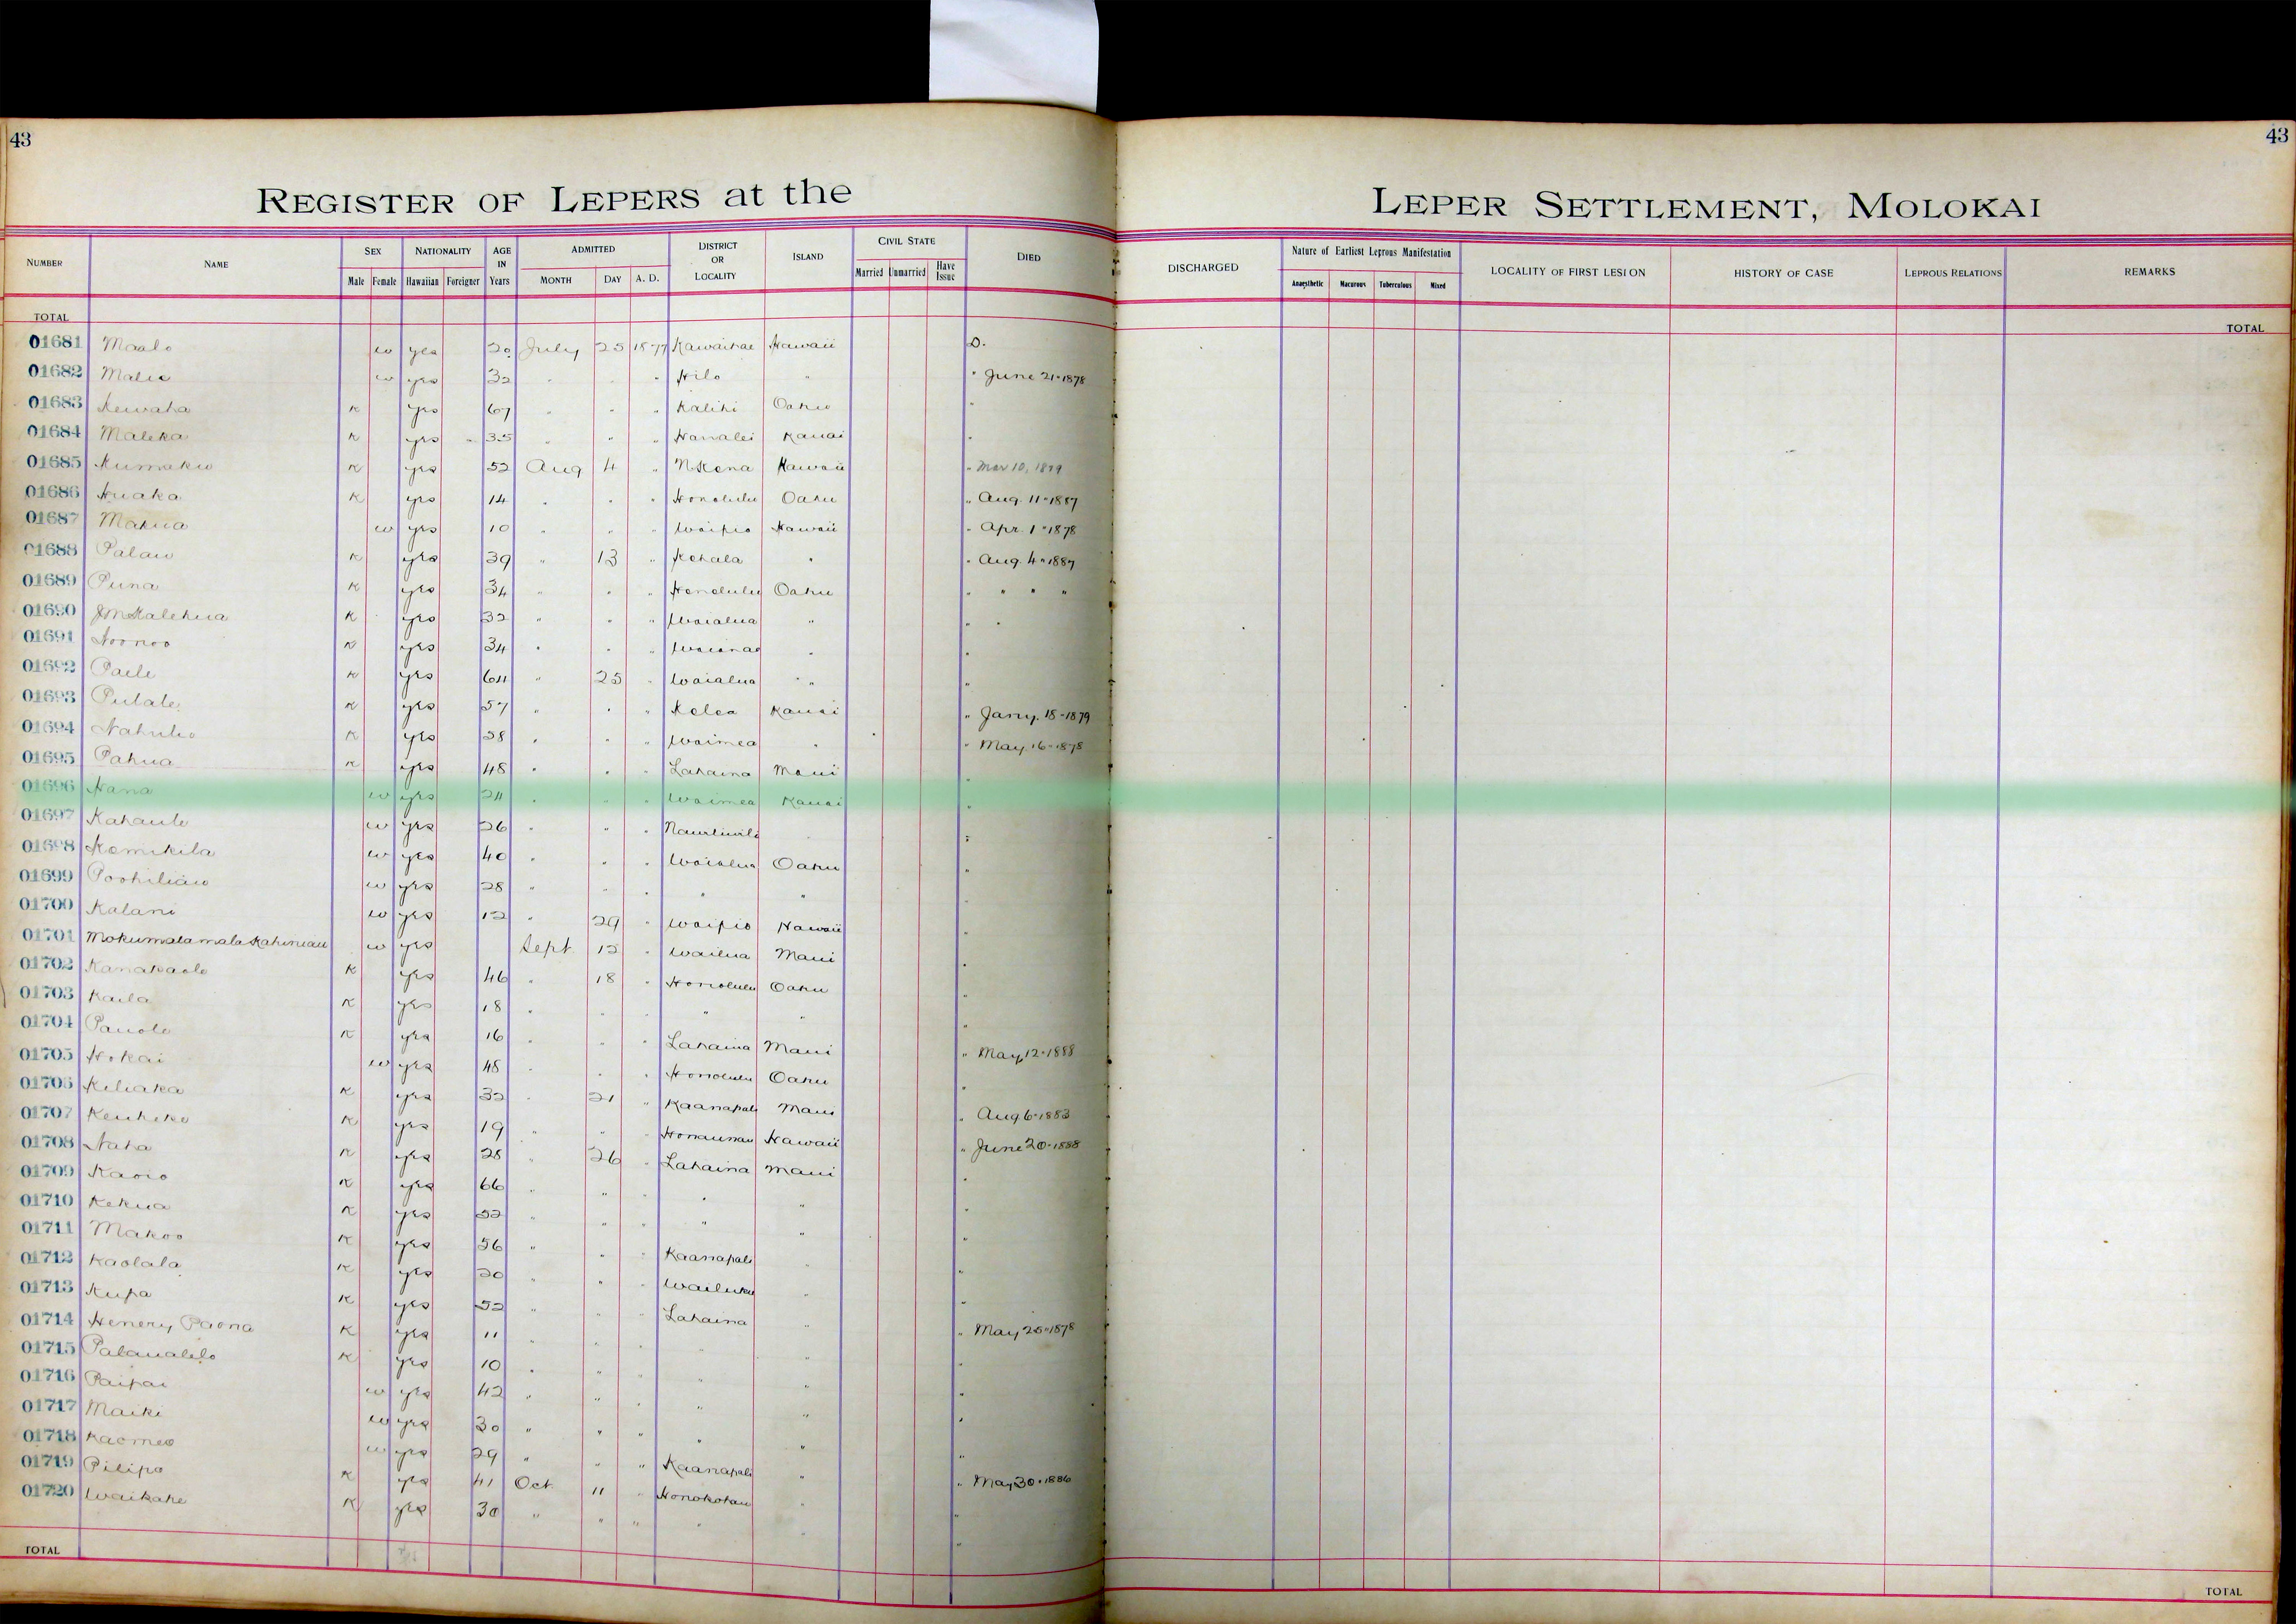 43
43
REGISTER OF LEPERS at the
LEPER SETTLEMENT, MOLOKAI
NUMBER NAME SEX NATIONALITY AGE IN Years ADMITTED DISTRICT OR LOCALITY ISLAND CIVIL STATE DIED DISCHARGED Nature of Earliest Leprous Manifestation LOCALITY OF FIRST LESION HISTORY OF CASE LEPROUS RELATIONS REMARKS
Male Female Hawaiian Foreigner MONTH DAY A. D. Married Unmarried Have Issue Anaesthetic Macurous Tuberculous Mixed
TOTAL TOTAL
01681 Maalo w yes 20 July 25 1877 Kawaihae Hawaii D.
01682 w yes 32 " " " Hilo " " June 21-1878
01683 Kewaha K yes 67 " " " Kalihi Oahu "
01684 Maleka K yes 35 " " " Hanalei Kauai "
01685 Kumaku K yes 52 Aug 4 " N Kona Hawaii " Mar 10, 1879
01686 Huaka K yes 14 " " " Honolulu Oahu " Aug. 11-1887
01687 Makua w yes 10 " " " Waipio Hawaii " Apr. 1-1878
01688 Palau K yes 39 " 13 " Kohala " " Aug. 4-1887
01689 Puna K yes 34 " " " Honolulu Oahu " " " "
01690 K yes 32 " " " Waialua " " "
01691 Noonoo K yes 34 " " " Waianae " "
01692 Paele K yes 64 " 25 " Waialua " " "
01693 Pulale K yes 57 " " " Kolea Kauai " Jany. 18-1879
01694 K yes 28 " " " Waimea " " May 16-1878
01695 Pahua K yes 48 " " " Lahaina Maui "
01696 Hana w yes 24 " " " Waimea Kauai "
01697 Kahaule w yes 26 " " " "
01698 Kamikila w yes 40 " " " Waialua Oahu "
01699 Poohiliau w yes 28 " " " " " "
01700 Kalani w yes 12 " 29 " Waipio Hawaii "
01701 w yes Sept 12 " Wailua Maui "
01702 Kanakaole K yes 46 " 18 " Honolulu Oahu "
01703 Kaila K yes 18 " " " " " "
01704 Pauole K yes 16 " " " Lahaina Maui " May 12-1888
01705 Hokai w yes 48 " " " Honolulu Oahu "
01706 Keliaka K yes 32 " 21 " Kaanapali Maui " Aug 6-1883
01707 K yes 19 " " " Honaunau Hawaii " June 20-1888
01708 Naha K yes 28 " 26 " Lahaina Maui "
01709 K yes 66 " " " " " "
01710 Kekua K yes 52 " " " " " "
01711 Makoo K yes 56 " " " Kaanapali " "
01712 Kaolala K yes 20 " " " Wailuku " "
01713 Kupa K yes 52 " " " Lahaina " "
01714 Henery Paona K yes 11 " " " " " " May 25-1878
01715 Palaualelo K yes 10 " " " " " "
01716 Paipai w yes 42 " " " " " "
01717 Maiki w yes 30 " " " " " "
01718 w yes 29 " " " Kaanapali " "
01719 Pilipo K yes 41 Oct 11 " Honokohau " " May 30-1886
01720 Waikahe K yes 30 " " " " " "
TOTAL TOTAL